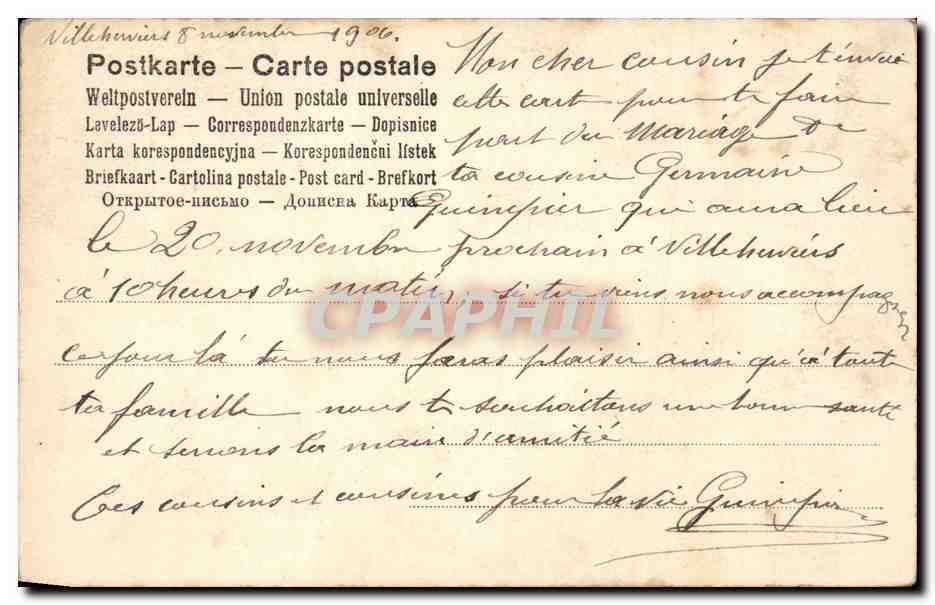 Villehuviers 8 novembre 1906.
Postkarte – Carte postale
Weltpostverein — Union postale universelle
Levelező-Lap — Correspondenzkarte — Dopisnice
Karta korespondencyjna — Korespondenčni lístek
Briefkaart - Cartolina postale - Post card - Brefkort
Открытое-письмо — Дописна Карта
Mon cher cousin je t'envoie
cette carte pour te faire
part du Mariage de
ta cousine Germaine
Guimpier qui aura lieu
le 20 novembre prochain à Villehuviers
à 10 heures du matin, si tu viens nous accompagner
ce jour là tu nous feras plaisir ainsi qu'à toute
ta famille nous te souhaitons une bonne santé
et serrons la main d'amitié
Ces cousins et cousines pour la vie Guimpier
CPAPHIL